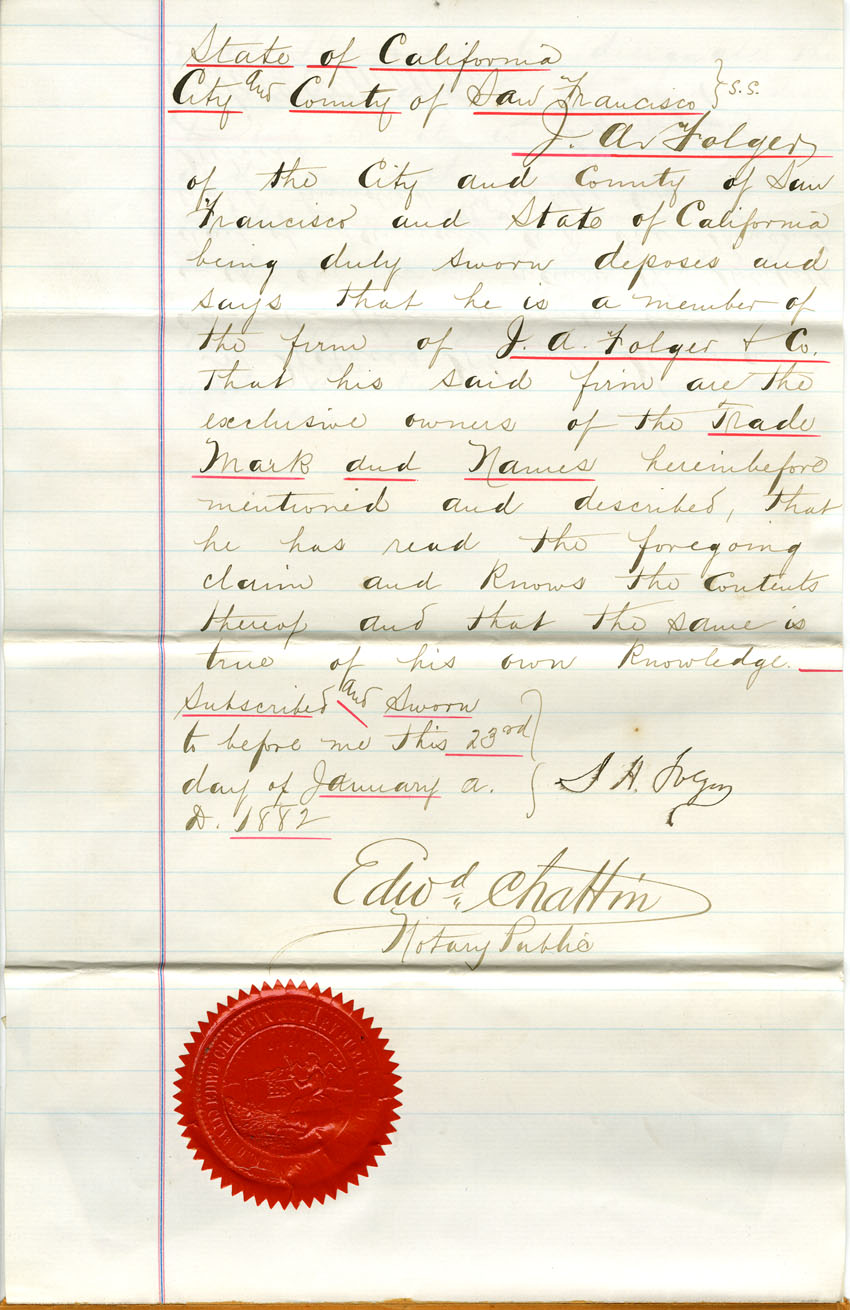 State of California
City and County of San Francisco } S.S.
J. A. Folger
of the City and County of San
Francisco and State of California
being duly sworn deposes and
says that he is a member of
the firm of J. A. Folger & Co.
that his said firm are the
exclusive owners of the Trade
Mark and Names hereinbefore
mentioned and described, that
he has read the foregoing
claim and knows the contents
thereof and that the same is
true of his own knowledge.
Subscribed and Sworn
to before me this 23rd
day of January A. } J A Folger
D. 1882
Edwd Chattin
Notary Public
EDWD CHATTIN